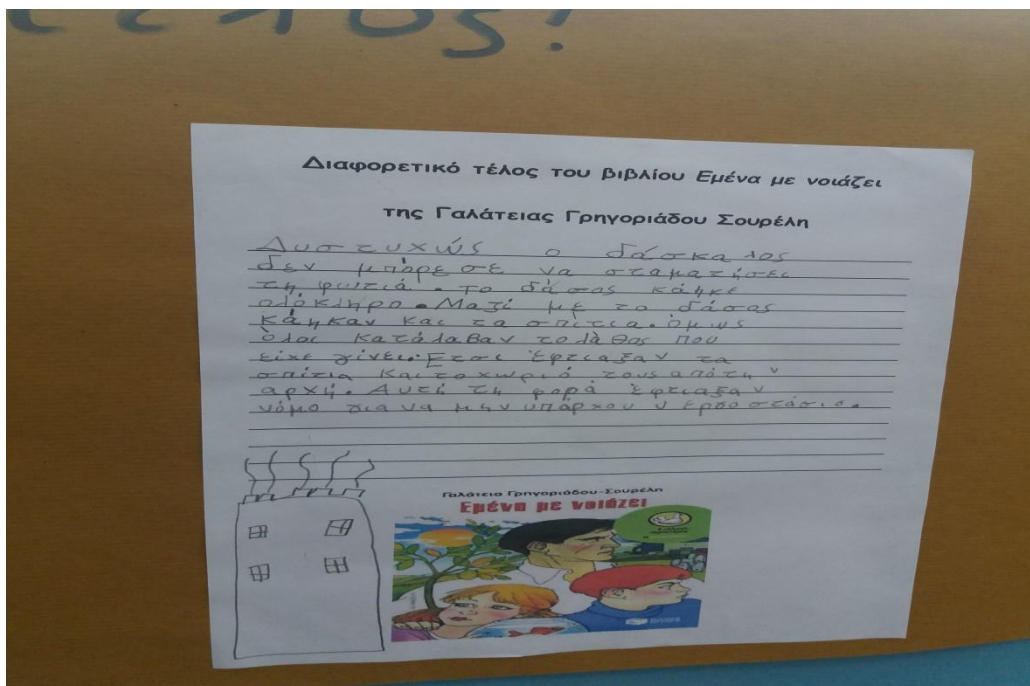 τέλος!
Διαφορετικό τέλος του βιβλίου Εμένα με νοιάζει
της Γαλάτειας Γρηγοριάδου Σουρέλη
Δυστυχώς ο δάσκαλος
δεν μπόρεσε να σταματήσει
τη φωτιά. Το δάσος κάηκε
ολόκληρο. Μαζί με το δάσος
κάηκαν και τα σπίτια. όμως
όλοι κατάλαβαν το λάθος που
είχε γίνει. Ετσι έφτιαξαν τα
σπίτια και το χωριό τους από την
αρχή. Αυτή τη φορά έφτιαξαν
νόμο για να μην υπάρχουν εργοστάσια.
Γαλάτεια Γρηγοριάδου-Σουρέλη
Εμένα με νοιάζει